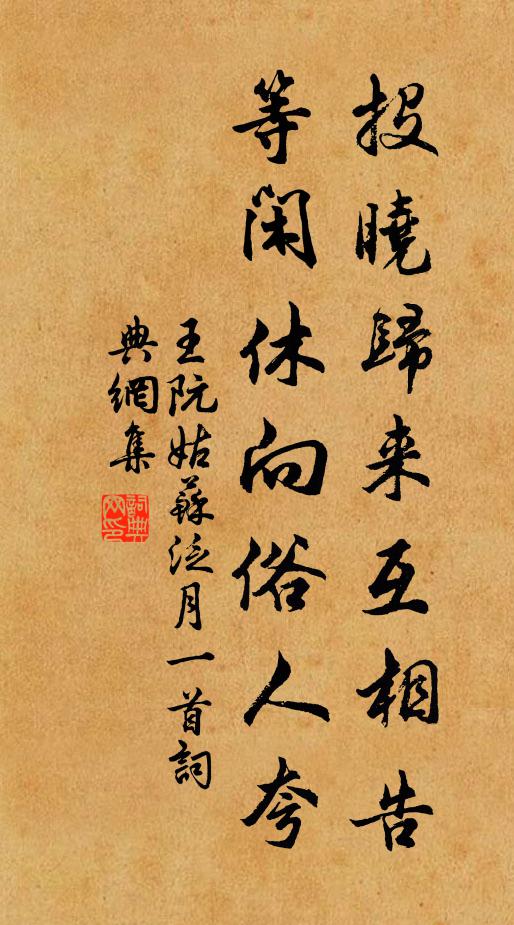 投曉歸来互相告
等閑休向俗人夸
王阮姑蘇泛月一首詞
典網集
詞典
网印